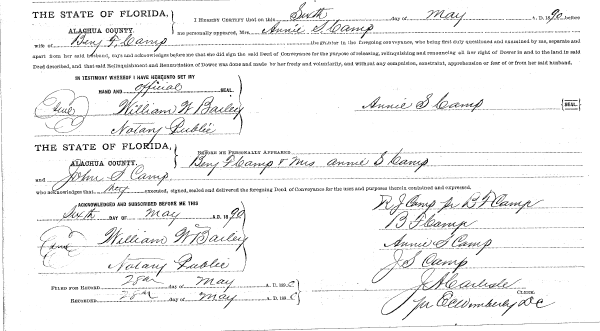 THE STATE OF FLORIDA,
ALACHUA COUNTY.
I HEREBY CERTIFY that on this Sixth day of May A. D. 1890 before
me personally appeared, Mrs. Annie S Camp
wife of Benj F Camp the grantor in the foregoing conveyance, who being first duly questioned and examined by me, separate and
apart from her said husband, says and acknowledges before me that she did sign the said Deed of Conveyance for the purpose of releasing, relinquishing and renouncing all her right of Dower in and to the land in said
Deed described, and that said Relinquishment and Renunciation of Dower was done and made by her freely and voluntarily, and without any compulsion, constraint, apprehension or fear of or from her said husband.
IN TESTIMONY WHEREOF I HAVE HEREUNTO SET MY
HAND AND official SEAL.
Seal William W Bailey
Annie S Camp SEAL.
Notary Public
THE STATE OF FLORIDA,
ALACHUA COUNTY.
BEFORE ME PERSONALLY APPEARED Benj F Camp & Mrs. Annie S Camp
and John S Camp
who acknowledges that they executed, signed, sealed and delivered the foregoing Deed of Conveyance for the uses and purposes therein contained and expressed.
ACKNOWLEDGED AND SUBSCRIBED BEFORE ME THIS
Sixth DAY OF May A.D. 1890
R J Camp pr B F Camp
B F Camp
Seal William W Bailey
Annie S Camp
Notary Public
J S Camp
FILED FOR RECORD 28th day of May A. D. 1890
J A Carlisle CLERK.
RECORDED 28th day of May A. D. 1890
pr E C Wimberly D C